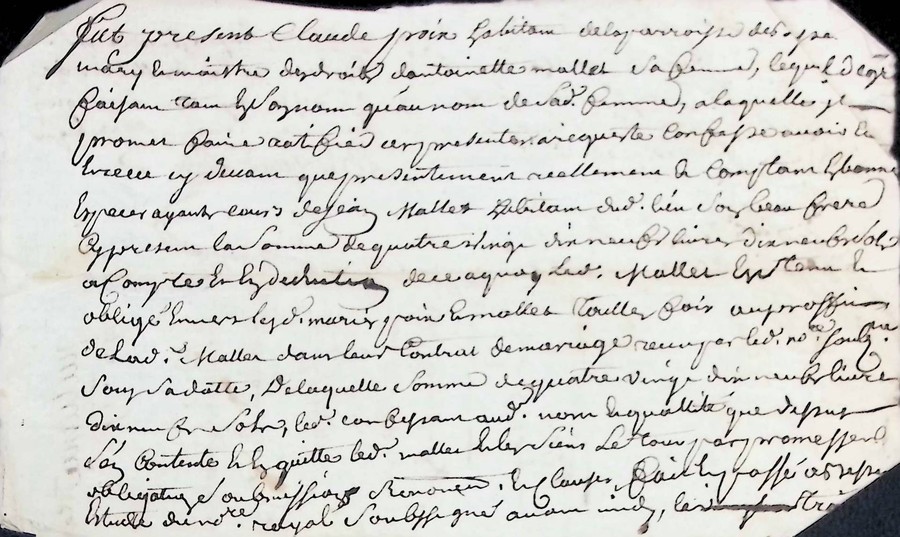 fut present Claude poix habitant de la parroisse des
mary et maistre des droits dantoinette mallet sa femme, lequel de gré
faisant tant en son nom qu'au nom de sad. femme, a laquelle il
promet faire ratifier ces presentes a requeste confesse avoir eu
et receu cy devant que presentement reellement et comptant en bonnes
especes ayants cours de Jean Mallet habitant dud. lieu son beau frere
cy present la somme de quatre vingt dix neuf livres dix neuf sols
a compte et en deduction de ce a quoy led. Mallet est tenu et
obligé envers lesd. mariés poix et mallet toutes fois au proffit
de lad. Mallet dans leur contrat de mariage receu par led. nore. soubzné.
sous sa datte, de laquelle somme de quatre vingt dix neuf livres
dix neuf sols, led. confessant aud. nom et quallité que dessus
s'en contente et en quitte led. mallet et les siens le tout par promesses
obligations soubmissions renoncns. et clauses, fait et passé a
estude du nore. royal soubssigné avant midy, le